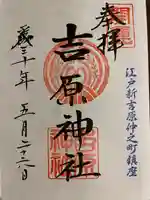 奉拝
江戸新吉原仲之町鎮座
吉原神社
平成三十年 五月二十三日